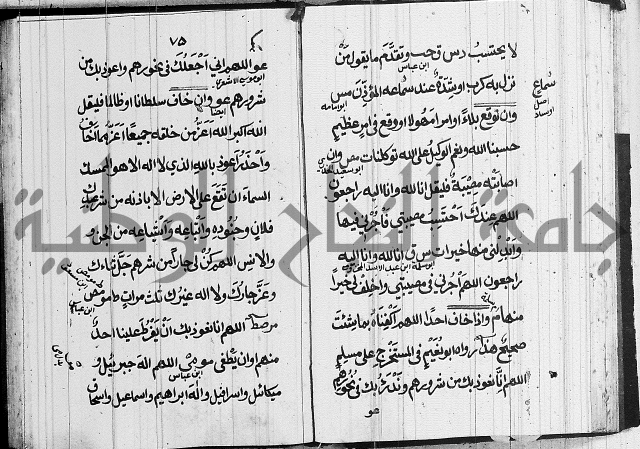 لا يحتسب دس ق حب وتقدم ما يقول من
ابن عباس
نزل به كرب او شدة عند سماعه المؤذن مس
ابو امامه
وان توقع بلاءً او امرا مهولا او وقع في امر عظيم
حسبنا الله ونعم الوكيل على الله توكلنا ت مص وان
اصابته مصيبة فليقل انا لله وانا اليه راجعون
اللهم عندك احتسب مصيبتي فأجرني فيها
وأبدلني منها خيرا ت س ق انا لله وانا اليه
راجعون اللهم أجرني في مصيبتي واخلف لي خيرا
منها م واذا خاف احدا اللهم اكفناه بما شئت
صحيح هذا رواه ابو نعيم في المستخرج على مسلم
اللهم انا نعوذ بك من شرورهم وندرؤ بك في نحورهم
عو
سماع
اصل
٧٥
عو اللهم اني أجعلك في نحورهم واعوذ بك من
ابو موسى الاشعري
شرورهم عو وان خاف سلطانا او ظالما فليقل
ايضا
الله اكبر الله أعز من خلقه جميعا الله أعز مما اخاف
وأحذر أعوذ بالله الذي لا اله الا هو الممسك
السماء أن تقع على الارض الا باذنه من شر عبدك
فلان وجنوده وأتباعه وأشياعه من الجن و
والانس اللهم كن لي جارا من شرهم جل ثناءك
وعز جارك ولا اله غيرك ثلث مرات ط مو مص
ابن عباس
مر مط اللهم انا نعوذ بك أن يفرط علينا احد
منهم او ان يطغى مو مي اللهم اله جبريل و
ابن عباس
ميكائل واسرافيل واله ابراهيم واسماعيل واسحاق
جامعة النجاح الوطنية